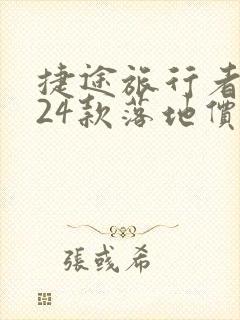 捷途旅行者
24款落地價
張彧希